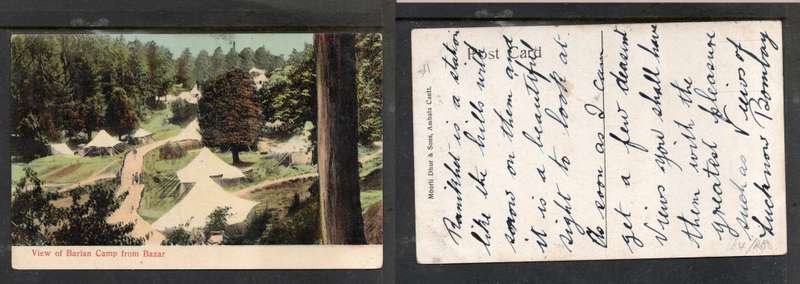 View of Barian Camp from Bazar
Post Card
Moorli Dhur & Sons, Ambala Cantt.
Ranikhet is a station
like the hills with
snow on them and
it is a beautiful
sight to look at.
As soon as I can
get a few descent
views you shall have
them with the
greatest pleasure
such as Views of
Lucknow Bombay